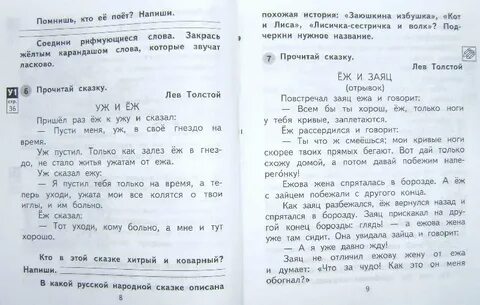 Помнишь, кто её поёт? Напиши.
Соедини рифмующиеся слова. Закрась
жёлтым карандашом слова, которые звучат
ласково.
У1
стр.
36
6 Прочитай сказку.
Лев Толстой
УЖ И ЁЖ
Пришёл раз ёж к ужу и сказал:
— Пусти меня, уж, в своё гнездо на
время.
Уж пустил. Только как залез ёж в гнез-
до, не стало житья ужатам от ежа.
Уж сказал ежу:
— Я пустил тебя только на время, а те-
перь уходи, ужата мои все колятся о твои
иглы, и им больно.
Ёж сказал:
— Тот уходи, кому больно, а мне и тут
хорошо.
Кто в этой сказке хитрый и коварный?
Напиши.
В какой русской народной сказке описана
8
похожая история: «Заюшкина избушка», «Кот
и Лиса», «Лисичка-сестричка и волк»? Под-
черкни нужное название.
7 Прочитай сказку.
Лев Толстой
ЁЖ И ЗАЯЦ
(отрывок)
Повстречал заяц ежа и говорит:
— Всем бы ты хорош, ёж, только ноги
у тебя кривые, заплетаются.
Ёж рассердился и говорит:
— Ты что ж смеёшься; мои кривые ноги
скорее твоих прямых бегают. Вот дай только
схожу домой, а потом давай побежим напе-
регонку!
Ежова жена спряталась в борозде. А ёж
с зайцем побежали с другого конца.
Как заяц разбежался, ёж вернулся назад и
спрятался в борозду. Заяц прискакал на дру-
гой конец борозды: глядь! — а ежова жена
уже там сидит. Она увидала зайца и говорит:
— А я уже давно жду!
Заяц не отличил ежову жену от ежа
и думает: «Что за чудо! Как это он меня
обогнал?»
9